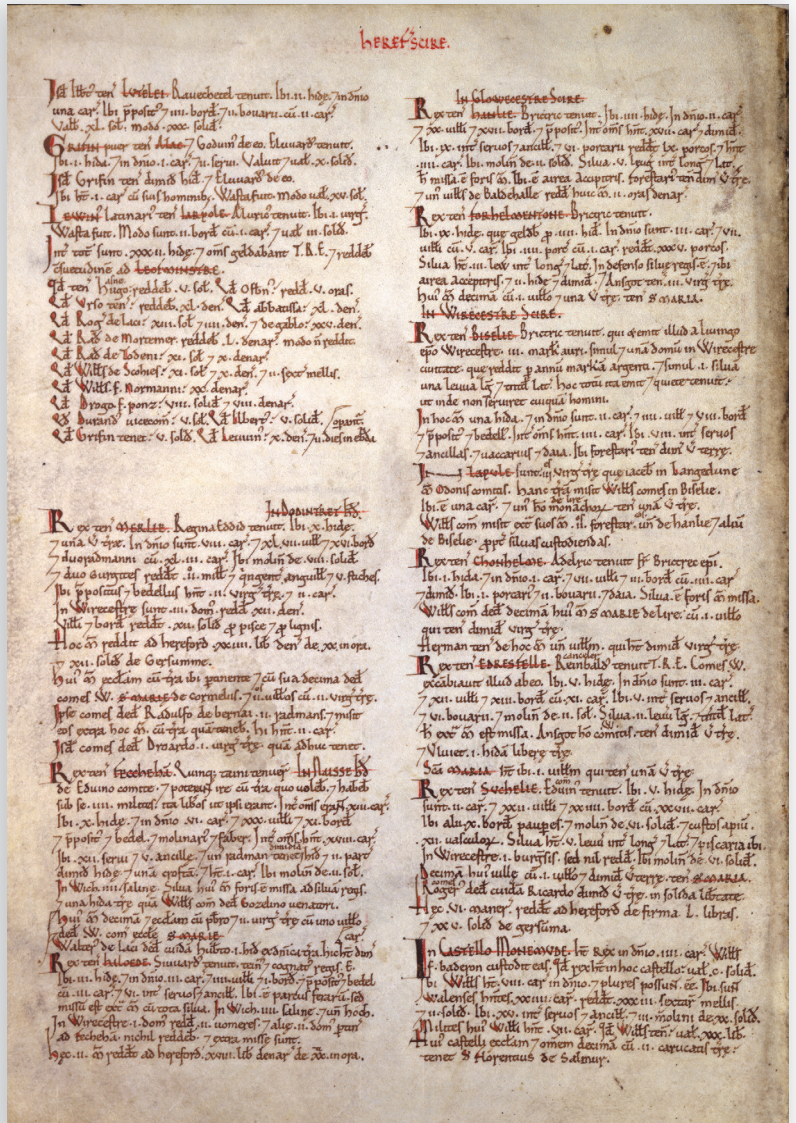 HEREFSCIRE.
Isd Ilbt' ten' LUTELEI. Rauechetel tenuit. Ibi. II. hidę. 7 in dnio
una car'. Ibi p̃posit' 7 IIII. bord'. 7 II. bouarii cū. II. car'.
Valb'. XL. sol'. modo. XXX. solid'.
GRIFIN puer ten' ALAC. 7 Goduin' de eo. Eluuard' tenuit.
Ibi. I. hida. 7 in dnio. I. car'. 7 II. serui. Valuit 7 ual'. X. solid'.
Isd Grifin ten' dimid hid'. 7 Eluuard' de eo.
Ibi ht'. I. car' cū suis hominib;. Wasta fuit. Modo ual'. XV. sol'.
LEWIN latinari' ten' LAPOLE. Aluric' tenuit. Ibi. I. uirg'.
Wasta fuit. Modo sunt. II. bord' cū. I. car'. 7 ual' III. solid.
Int' tot' sunt. XXX. II. hidę. 7 om̃s geldabant T.R.E. 7 reddeb'
c̃suetudinē ad LEOMINSTRE.
Qd ten' Hugo: reddeb'. V. sol'. Qd Osbn': redd'. V. oras.
Qd Urso ten': reddeb'. XL. den'. Qd abbatissa: XL. den'.
Qd Rog' de laci: XII. sol' 7 IIII. den'. 7 de gablo: XXV. den'.
Qd Rad' de Mortemer. reddeb'. L. denar'. modo ñ reddit.
Qd Rad' de Todeni: XI. sol' 7 X. denar'.
Qd Wills de Scohies: XI. sol' 7 X. den'. 7 II. sext' mellis.
Qd Wills. F. Normanni: XX. denar'.
Qd Drogo. F. ponz: VIII. solid' 7 VIII. denar'.
Qd Durand' uicecom': V. sol'. Qd Ilbert': V. solid'.
Qd Grifin tenet: V. solid'. Qd Leuuin': X. den'. 7 II. dies in ebda
IN DODINTRET HD'.
REX ten' MERLIE. Regina Eddid tenuit. Ibi. X. hidę.
7 una V træ. In dnio sunt. VIII. car'. 7 XL. VII. uill'i 7 XVI. bord'
7 duo radmanni cū. XL. III. car'. Ibi molin' de. VIII. solid'
7 duo gurgites redd̃t. II. mill' 7 qingent' anguill' 7 V. stiches.
Ibi p̃positus 7 bedellus hn̄t. II. uirg' træ. 7 II. car'.
In Wirecestre sunt. III. dom'. redd'. XII. den'.
Uill'i 7 bord'. redd̃t. XVIII. solid' p pisce 7 p lignis.
Hoc m̃ reddit ad hereford. XXIIII. lib' den' de. XX. in ora.
7 XII. solid' de Gersumme.
Hui' m̃ ecclam cū t̃ra ibi p̃tinente 7 cū sua decima ded'
comes W. S MARIE de cormelies. 7 II. uill'os cū. II. uirg' træ.
Ipse comes ded' Radulfo de bernai. II. radmans. 7 misit
eos extra hoc m̃. cū t̃ra quā teneb'. Hi hn̄t. II. car'.
Isd' comes ded' Droardo. I. uirg' træ. quā adhuc tenet.
REX ten' FECCHEHA. Quinq; taini tenuer'. IN NAISSE HD'
de Eduino comite. 7 poterañ ire cū t̃ra quo uoleb'. 7 habeb'
sub se. IIII. milites. ita libos ut ipsi erant. Int' om̃s erañ. XIII. car'.
Ibi. X. hidę. In dnio. VI. car'. 7 XXX. uill'i 7 XII. bord'
7 p̃posit' 7 bedel'. 7 molinari' 7 faber. Int' om̃s hn̄t. XVIII. car'.
Ibi. XII. serui 7 V. ancillę. 7 un' radman tenet dimidia hid' 7 II. part'
dimid hidę 7 una croftā. 7 ht'. I. car'. Ibi molin' de. II. sol'.
In Wich. IIII. salinę. Silua hui' m̃ foris ē missa ad siluā regis.
7 una hida træ quā Wills com' ded' Gozelino uenatori.
Hui' m̃ decimā 7 ecclam cū p̃bro 7 II. uirg' træ cū uno uill'o
ded' W. com' eccłę S MARIE
Walter de laci ded' cuidā Hubto. I. hid'. ex dnica t̃ra. Hic ht' dim' car'
REX ten' HALOEDE. Siuuard' tenuit. tein' 7 cognat' regis. E.
Ibi. III. hidę. In dnio. III. car'. 7 IIII. uill'i 7 I. bord' 7 p̃posit' 7 bedel'
cū. III. car'. 7 VI. int' seruos 7 ancill'. Ibi. ē parcus ferarū. sed
missū est ext' m̃ cū tota silua. In Wich. IIII. salinę. 7 un' hoch.
In Wirecestre. I. dom' redd'. II. uomeres. 7 alię. II. dom' p̃tin'
ad feccheha. nichil reddeb'. 7 extra missę sunt.
Hęc. II. m̃ redd̃t ad hereford. XVIII. lib' denar' de. XX. in ora.
IN GLOWECESTRE SCIRE.
REX ten' HANLIE. Brictric tenuit. Ibi. IIII. hidę. In dnio. II. car'
7 XX. uill'i 7 XVII. bord'. 7 p̃posit'. Int' om̃s hn̄t. XVII. car' 7 dimid'.
Ibi. IX. int' seruos 7 ancill'. 7 VI. porcarii redd̃t. LX. porcos. 7 hn̄t
IIII. car'. Ibi molin' de. II. solid'. Silua. V. leug' int' long' 7 lat'.
H' missa ē foris m̃. Ibi. ē airea accipitris. Forestari' ten' dim' V træ.
7 un' uill's de Baldehalle redd' huic m̃. II. oras denar'.
REX ten' FORHELMENTONE. Brictric tenuit.
Ibi. IX. hidę. que geldb' p. IIII. hid'. In dnio sunt. III. car'. 7 VII.
uill'i cū. V. car'. Ibi. IIII. porc' cū. I. car'. redd̃t. XXXV. porcos.
Silua ht'. III. leuu' int' long' 7 lat'. In defenso siluę regis. ē. 7 ibi
airea accipitris. 7 II. hidę 7 dimid'. 7 Ansgot ten'. III. uirg' træ.
Hui' m̃ decimā cū. I. uill'o 7 una V træ. ten' S MARIA.
IN WIRECESTRE SCIRE.
REX ten' BISELIE. Brictric tenuit. qui emit illud a Liuingo
ep̃o Wirecestre. III. mark' auri. simul 7 una domū in Wirecestre
ciuitate. que reddit p annū markā argenti. 7 simul. I. silua
una leuua lg' 7 tntd' lat'. hoc totū ita emit 7 quiete tenuit.
ut inde non seruiret cuiquā homini.
In hoc m̃ una hida. 7 in dnio sunt. II. car'. 7 IIII. uill'i. 7 VIII. bord'
7 p̃posit' 7 bedell'. Int' om̃s hn̄t. IIII. car'. Ibi. VIII. int' seruos
7 ancillas. 7 uaccari' 7 daia. Ibi forestari' ten' dim' V terrę.
In LAPULE sunt. III. uirg' træ. que iaceb' in langedune
m̃ Odonis comitis. Hanc t̃rā misit Wills comes in Biselie.
Ibi. ē una car'. 7 un' ho monachor' de lire ten' una V træ.
Wills com' misit ext' suos m̃. II. forestar'. un' de hanlie 7 aliu
de Biselie. ppt' siluas custodiendas.
REX ten' CHONHELME. Adelric tenuit fr' Brictrec ep̃i.
Ibi. I. hida. 7 in dnio. I. car'. 7 VII. uill'i 7 III. bord' cū. IIII. car'
7 dimid'. Ibi. I. porcari' 7 II. bouarii. 7 daia. Silua. ē foris m̃ missa.
Wills com' ded' decimā hui' m̃ S MARIE de lire. cū. I. uill'o
qui ten' dimid' uirg' træ.
Herman ten' de hoc m̃ un' uill'm. qui ht' dimid' uirg' træ.
REX ten' EDRESFELLE. Reinbald' canceler tenuit T.R.E. Comes W.
excābiauit illud ab eo. Ibi. V. hidę. In dnio sunt. III. car'.
7 XII. uill'i 7 XIII. bord' cū. XI. car'. Ibi. V. int' seruos 7 ancill'.
7 VI. bouarii. 7 molin' de. II. sol'. Silua. II. leuu' lg' 7 tntd' lat'.
h' ext' m̃ est missa. Ansgot ho comitis. ten' dimid' V træ.
7 Uluiet. I. hidā liberę træ.
Sc̃a MARIA ht' ibi. I. uill'm qui ten' unā V træ.
REX ten' SUCHELIE. Eduin' com' tenuit. Ibi. V. hidę. In dnio
sunt. II. car'. 7 XXII. uill'i 7 XXIIII. bord' cū. XXVII. car'.
Ibi alii. X. bord' pauperes. 7 molin' de. VI. solid'. 7 custos apiū.
XII. uasculor'. Silua ht'. V. leuu' int' long' 7 lat'. 7 piscaria ibi.
In Wirecestre. I. burgsis. sed nil redd'. Ibi molin' de. VI. solid'.
Decimā hui' uillę cū. I. uill'o 7 dimid' V terrę. ten' S MARIA.
Roger' ded' cuidā Ricardo dimid' V træ. in solida libtate.
Hęc. VI. maner' redd̃t ad hereford de firma. L. libras.
7 XXV. solid' de gersuma.
IN CASTELLO MONEMUDE. ht' REX in dnio. IIII. car'. Wills
F. baderon custodit eas. Qd rex ht' in hoc castello: ual'. C. solid'.
Ibi Wills ht'. VIII. car' in dnio. 7 plures possuñ. ee'. Ibi sunt
Walenses hn̄tes. XXIIII. car'. redd̃t. XXXIII. sextar' mellis.
7 II. solid'. Ibi. XV. int' seruos 7 ancill'. 7 III. molini de. XX. solid'.
Milites hui' Willi hn̄t. VII. car'. Qd Wills ten': ual'. XXX. lib'.
Hui' castelli ecclam 7 omem decimā cū. II. carucatis træ:
tenet S Florentius de Salmur.